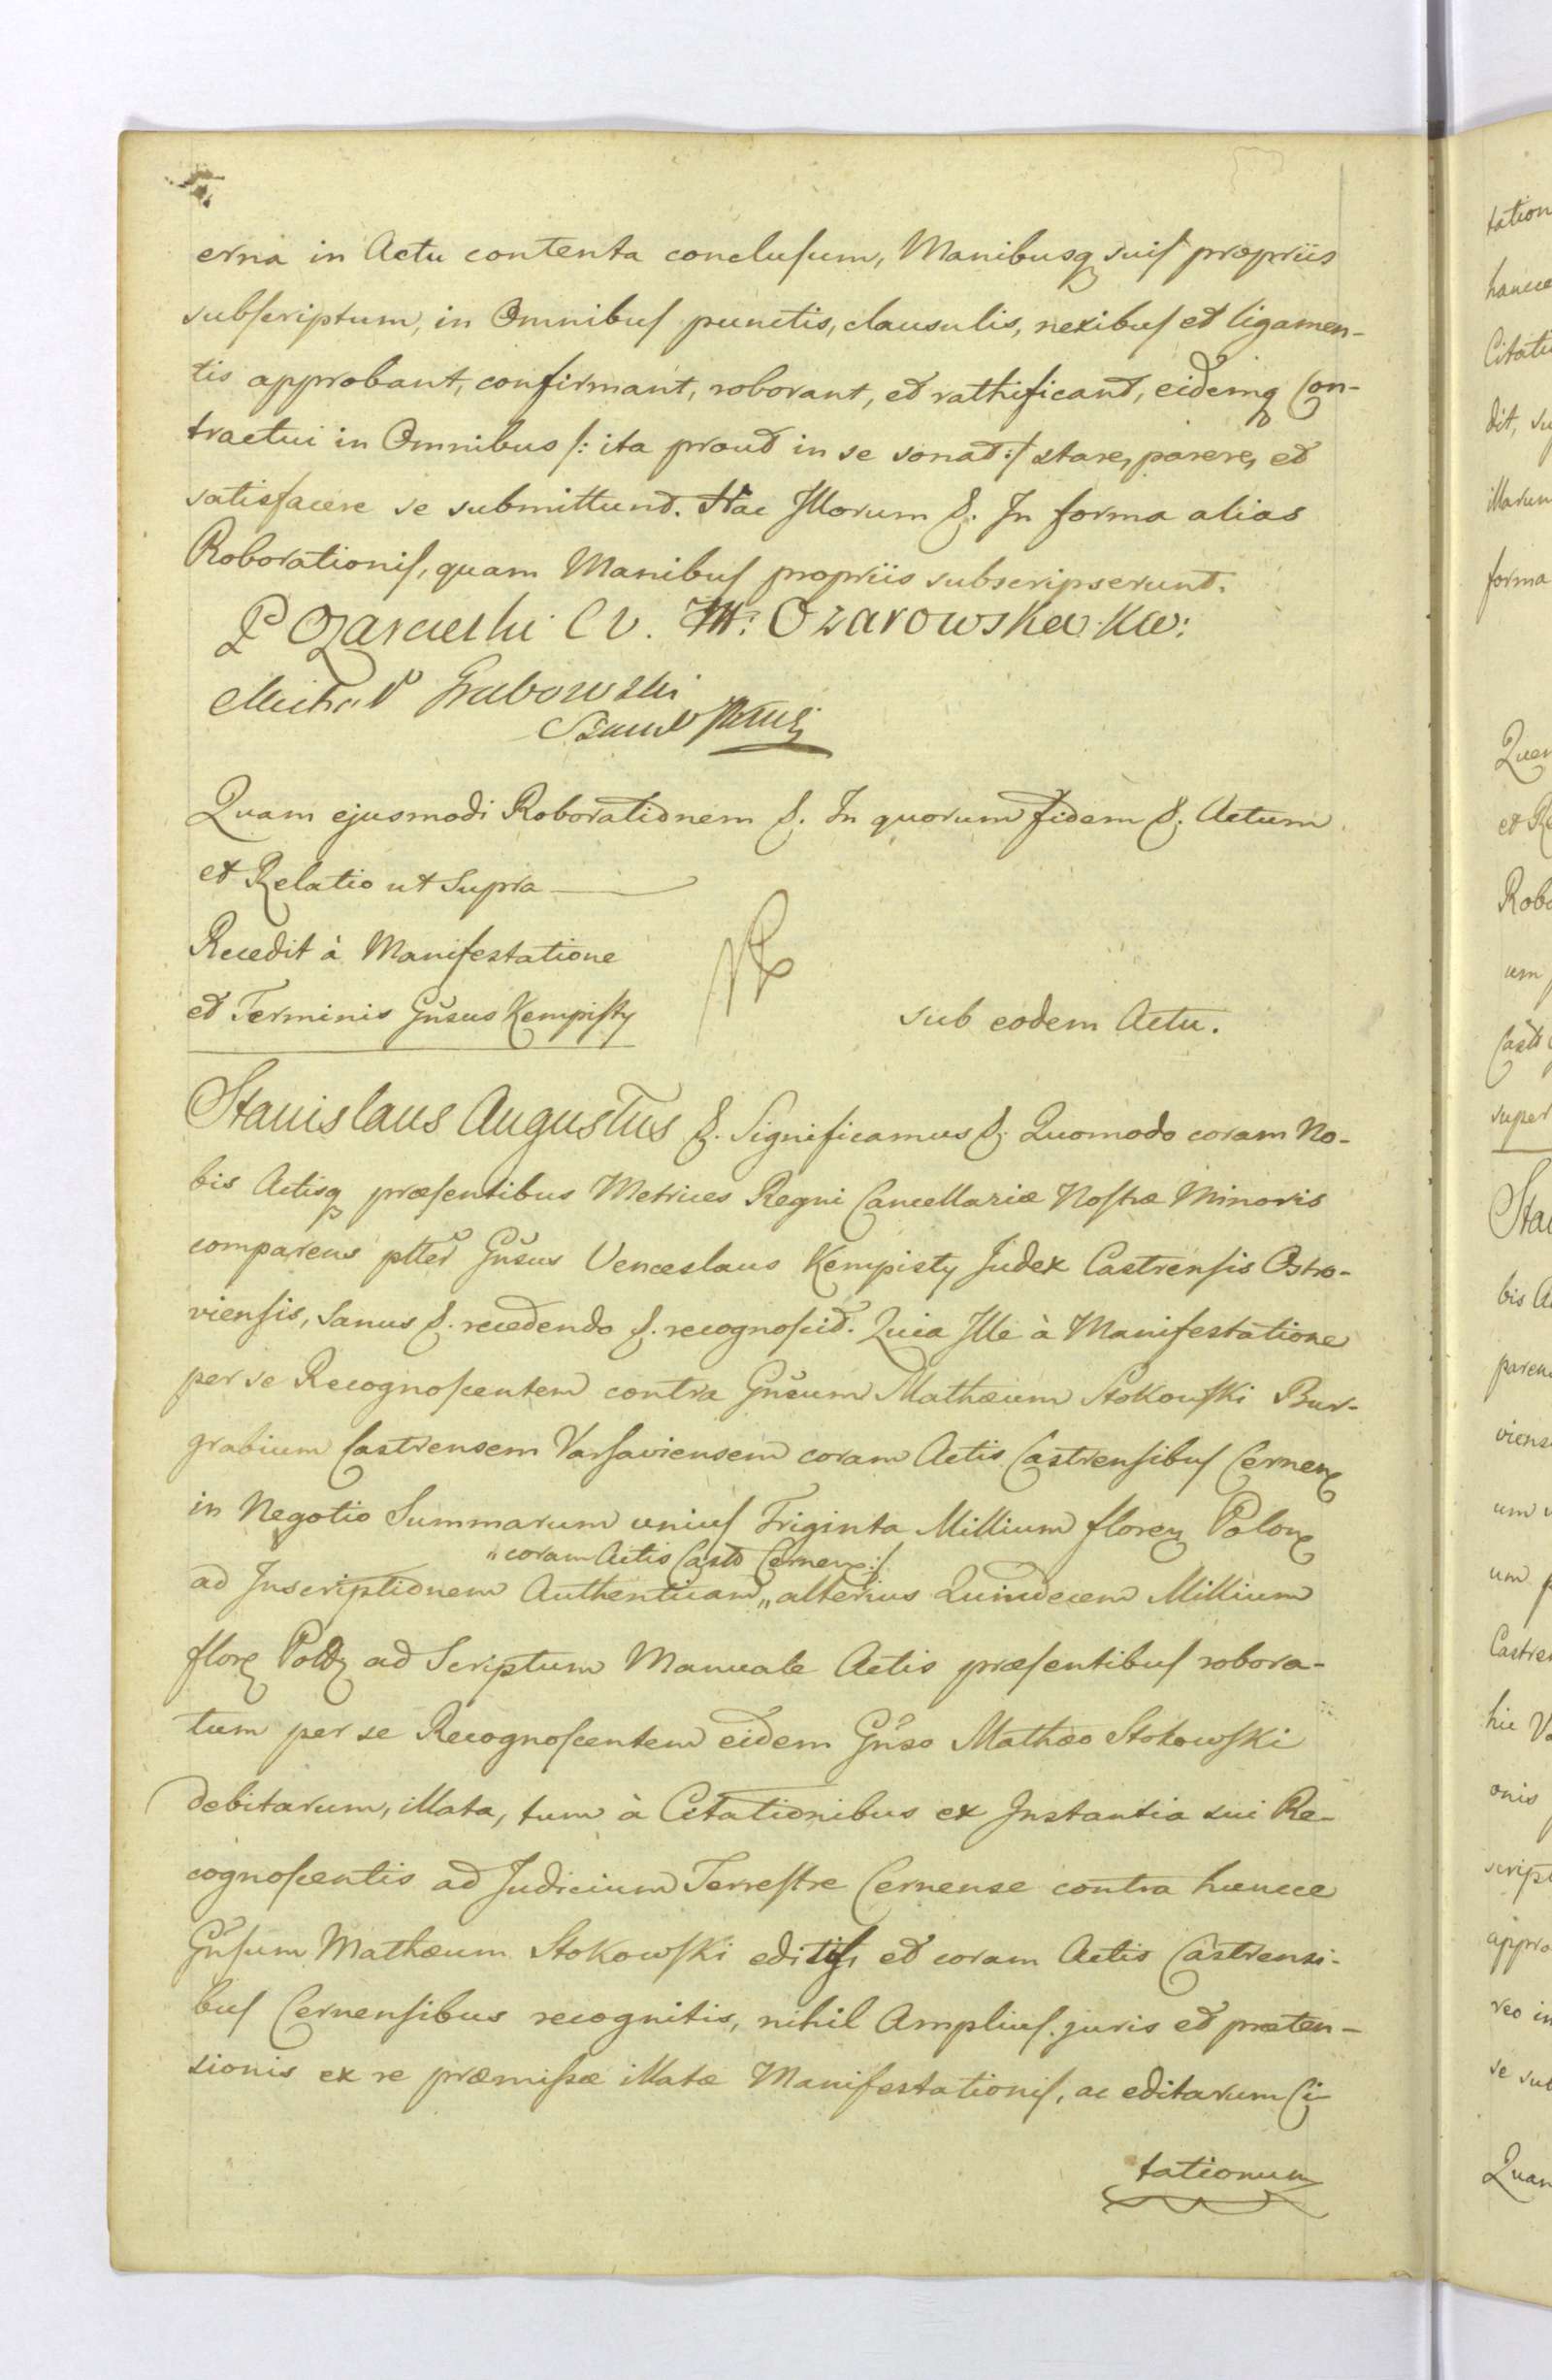 erna in Actu contenta conclusum, Manibusq suis propriis
subscriptum, in Omnibus punctis, clausulis, nexibus et ligamen-
tis approbant, confirmant, roborant, et rathificant, eidemq Con-
tractui in Omnibus /: ita prout in se sonat :/ stare, parere, et
satisfacere se submittunt. Hac Illorum &. In forma alias
Roborationis, quam Manibus propriis subscripserunt.
P Ożarowski C W. M: Ozarowska Kw:
Michał Grabowski
Quam ejusmodi Roborationem &. In quorum fidem &. Actum
et Relatio ut Supra
Recedit à Manifestatione
et Terminis Gnsus Kempisty
sub eodem Actu.
Stanislaus Augustus &. Significamus &. Quomodo coram No-
bis Actisq præsentibus Metrices Regni Cancellariæ Nostræ Minoris
comparens ptter Gnsus Venceslaus Kempisty Judex Castrensis Ostro-
viensis, Sanus &. recedendo &. recognoscit. Quia Ille à Manifestatione
per se Recognoscentem contra Gnsum Mathæum Stokowski Bur-
grabium Castrensem Varsaviensem coram Actis Castrensibus Cernen
in Negotio Summarum unius Triginta Millium floren Polon
" coram Actis Castr Cernen :/
ad Inscriptionem Authenticam " alterius Quindecem Millium
flor Pold ad Scriptum Manuale Actis præsentibus robora-
tum per se Recognoscentem eidem Gnso Mathæo Stokowski
debitarum, illata, tum à Citationibus ex Instantia sui Re-
cognoscentis ad Judicium Terrestre Cernense contra huncce
Gnsum Mathæum Stokowski editis, et coram Actis Castrensi-
bus Cernensibus recognitis, nihil Amplius juris et præten-
sionis ex re præmissæ illatæ Manifestationis, ac editarum Ci-
tationum